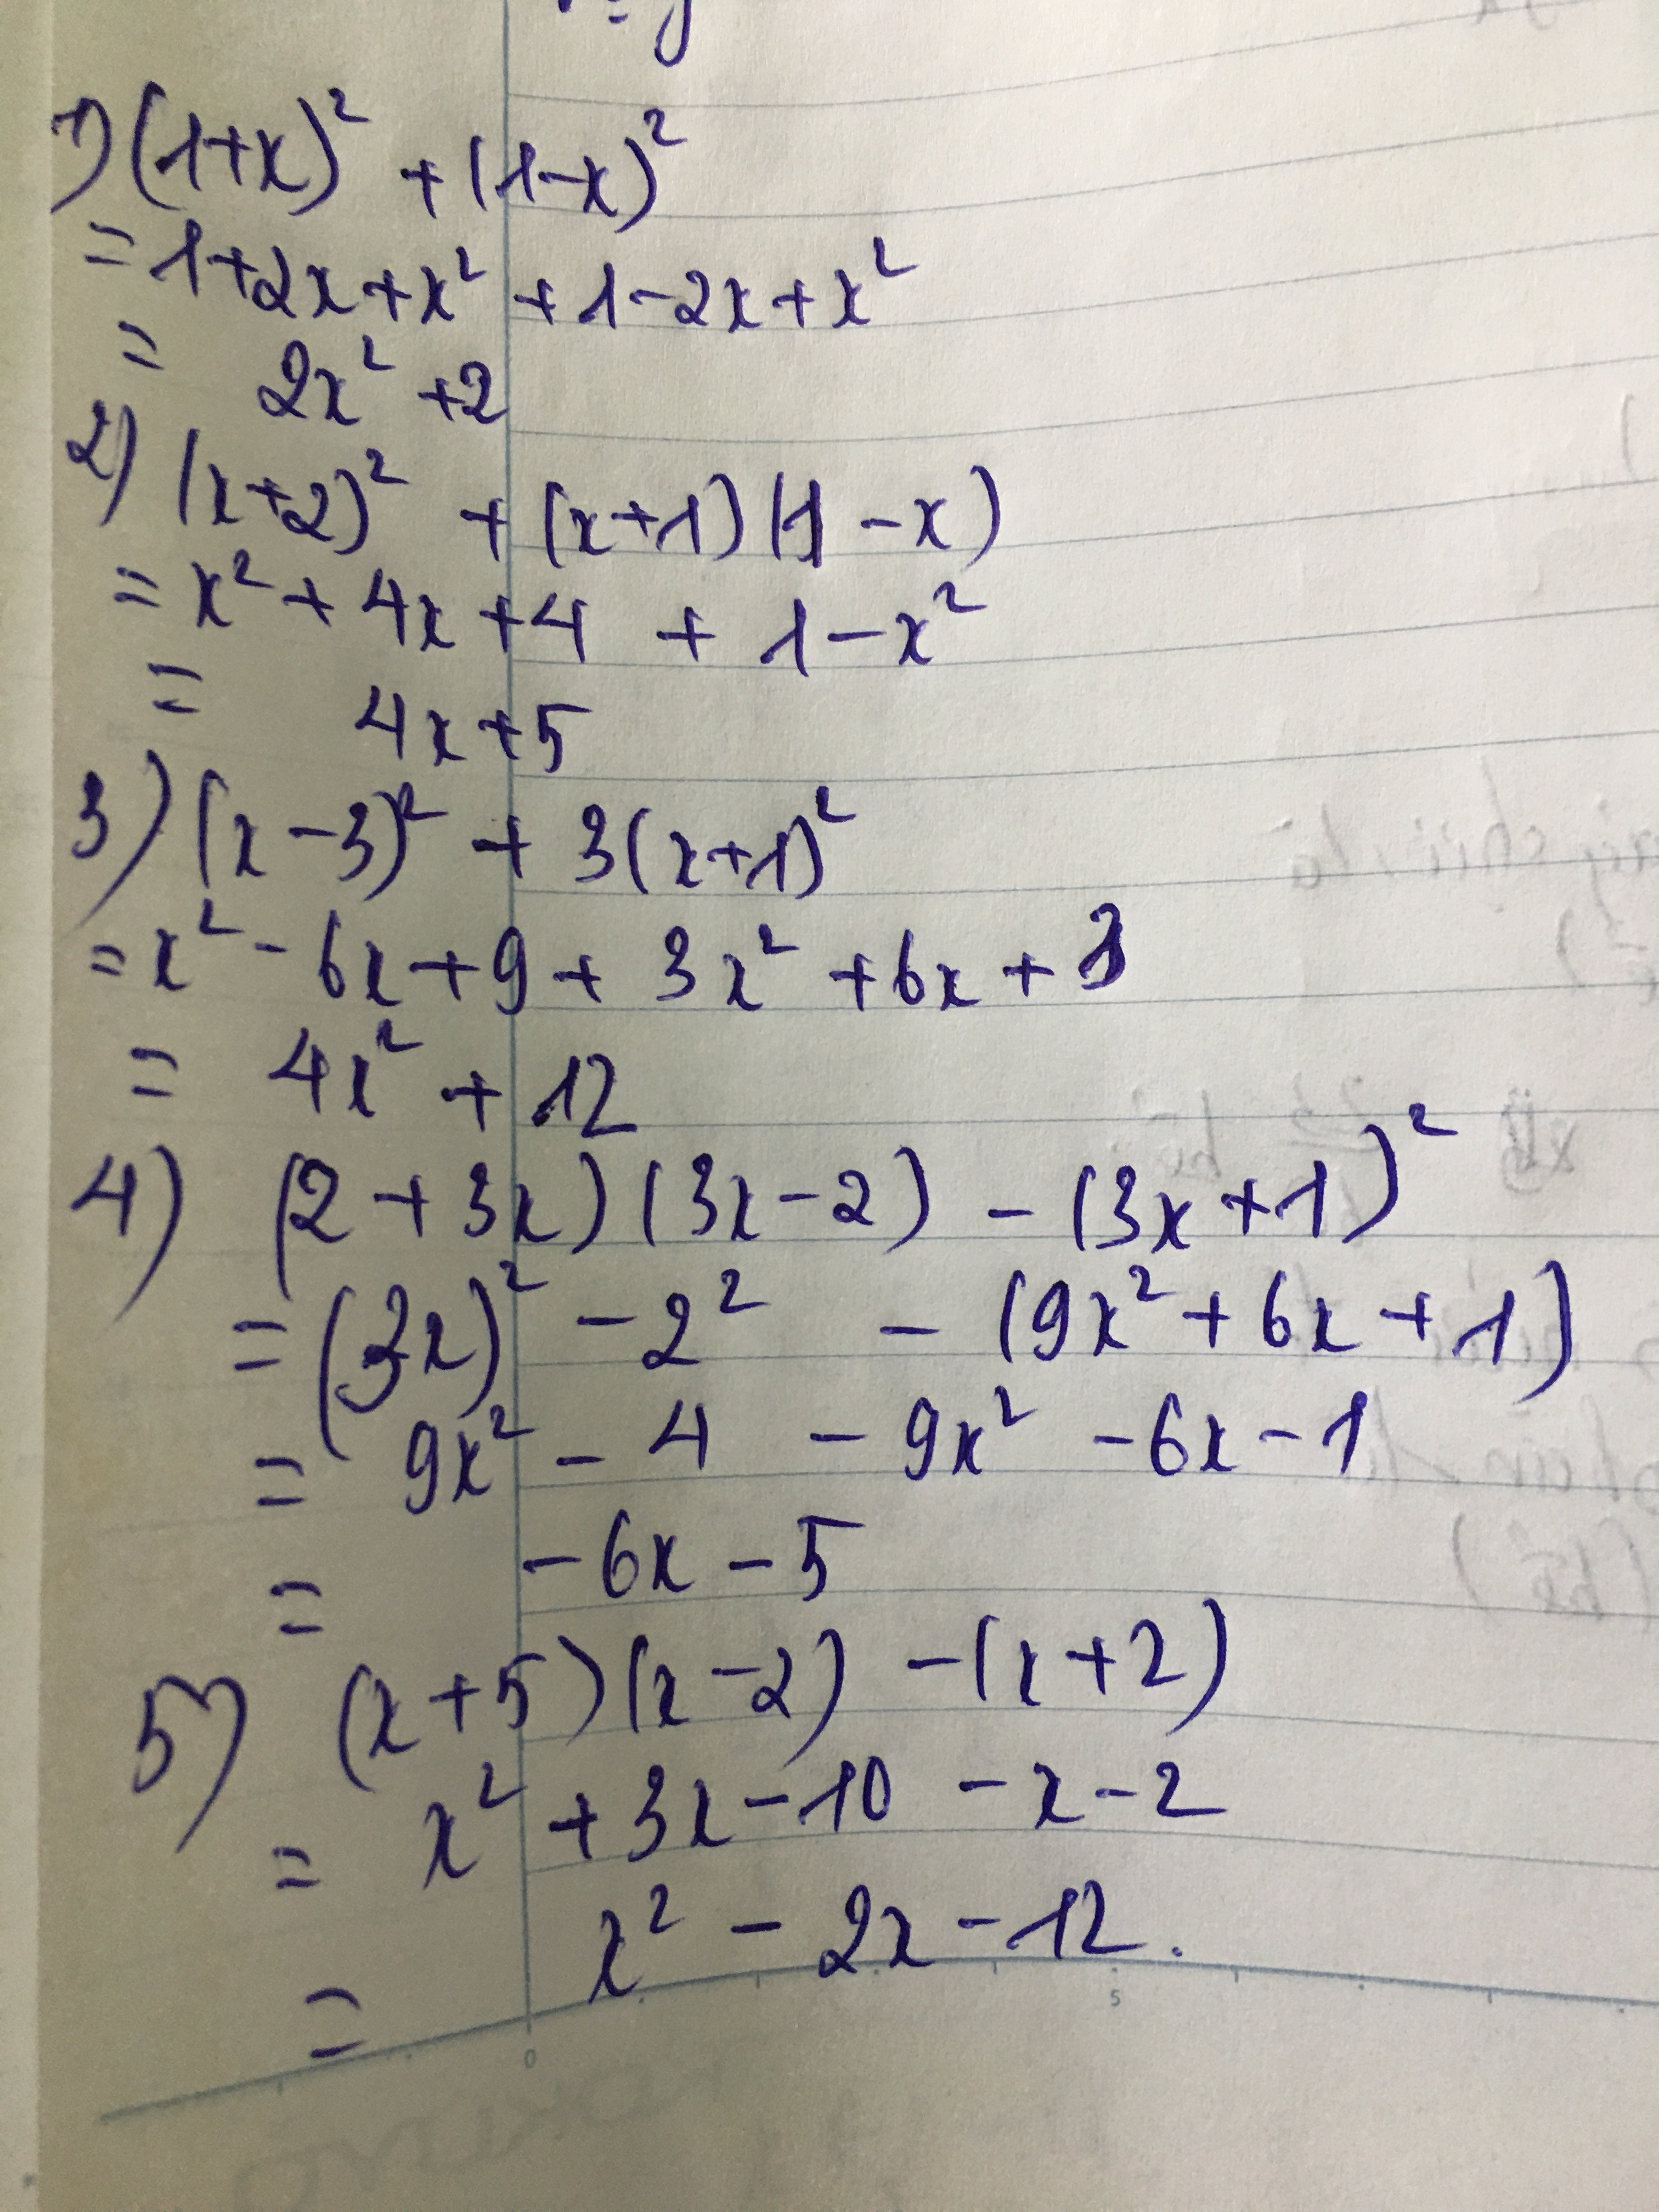 1) (1+x)² + (1-x)²
= 1+2x+x² + 1-2x+x²
= 2x² +2
2) (x+2)² + (x+1)(1-x)
= x² + 4x+4 + 1-x²
= 4x+5
3) (x-3)² + 3(x+1)²
= x² - 6x+9 + 3x² +6x+3
= 4x² + 12
4) (2+3x)(3x-2) - (3x+1)²
= (3x)² - 2² - (9x²+6x+1)
= 9x² - 4 - 9x² -6x-1
= -6x-5
5) (x+5)(x-2) -(x+2)
= x² +3x-10 -x-2
= x² - 2x-12.
0 5